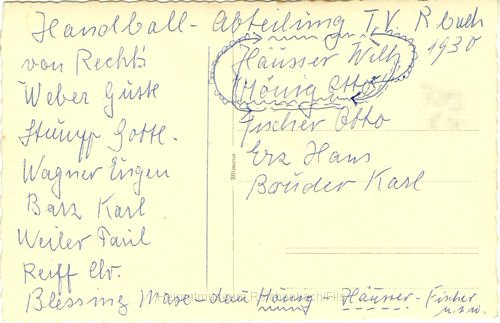 Handball-Abteilung T.V. R.bach
1930
von Rechts
Weber Gustl
Stumpp Gottl.
Wagner Eugen
Barz Karl
Weiler Paul
Reiff Chr.
Blessing Max dan Hönig - Häusser - Fischer
u.s.w.
Häusser Willy
Hönig Otto
Fischer Otto
Erz Hans
Bruder Karl
Mimosa